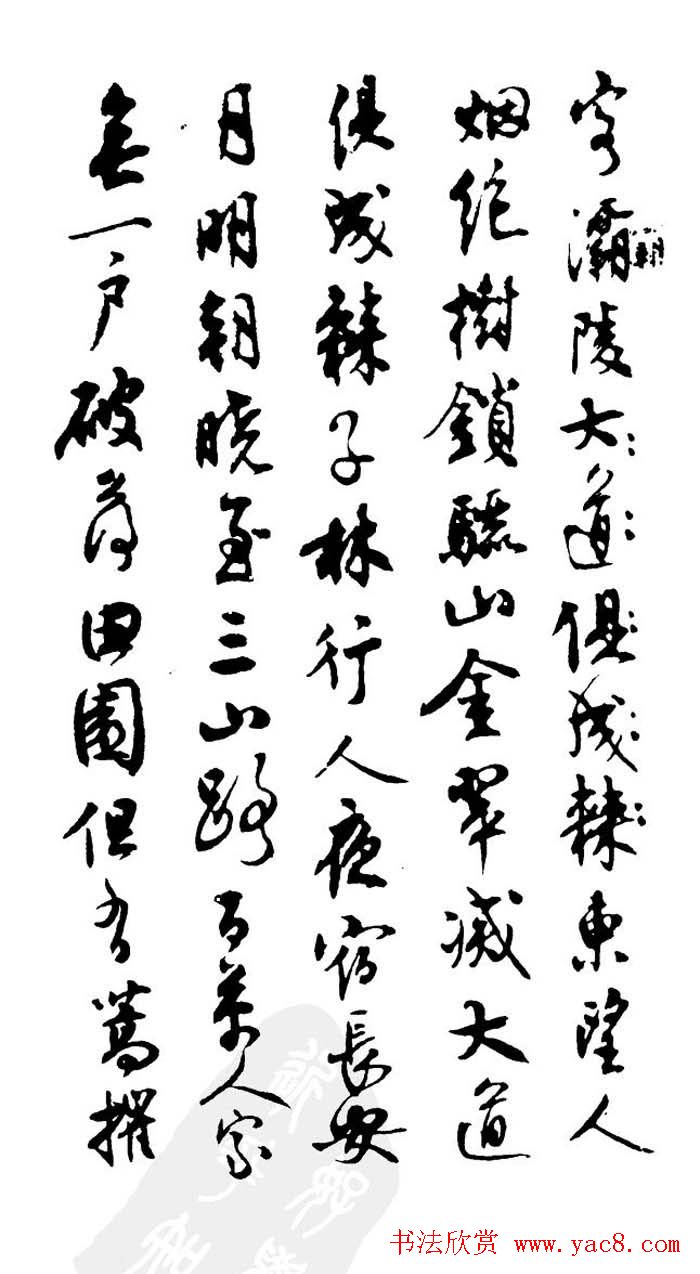 客灞陵大道俱成棘東望人
烟絶樹鎖驪山金翠滅大道
俱成棘子林行人夜宿長安
月明朝曉至三山路百萬人家
無一戶破落田園但有蒿摧
书法欣赏 www.yac8.com